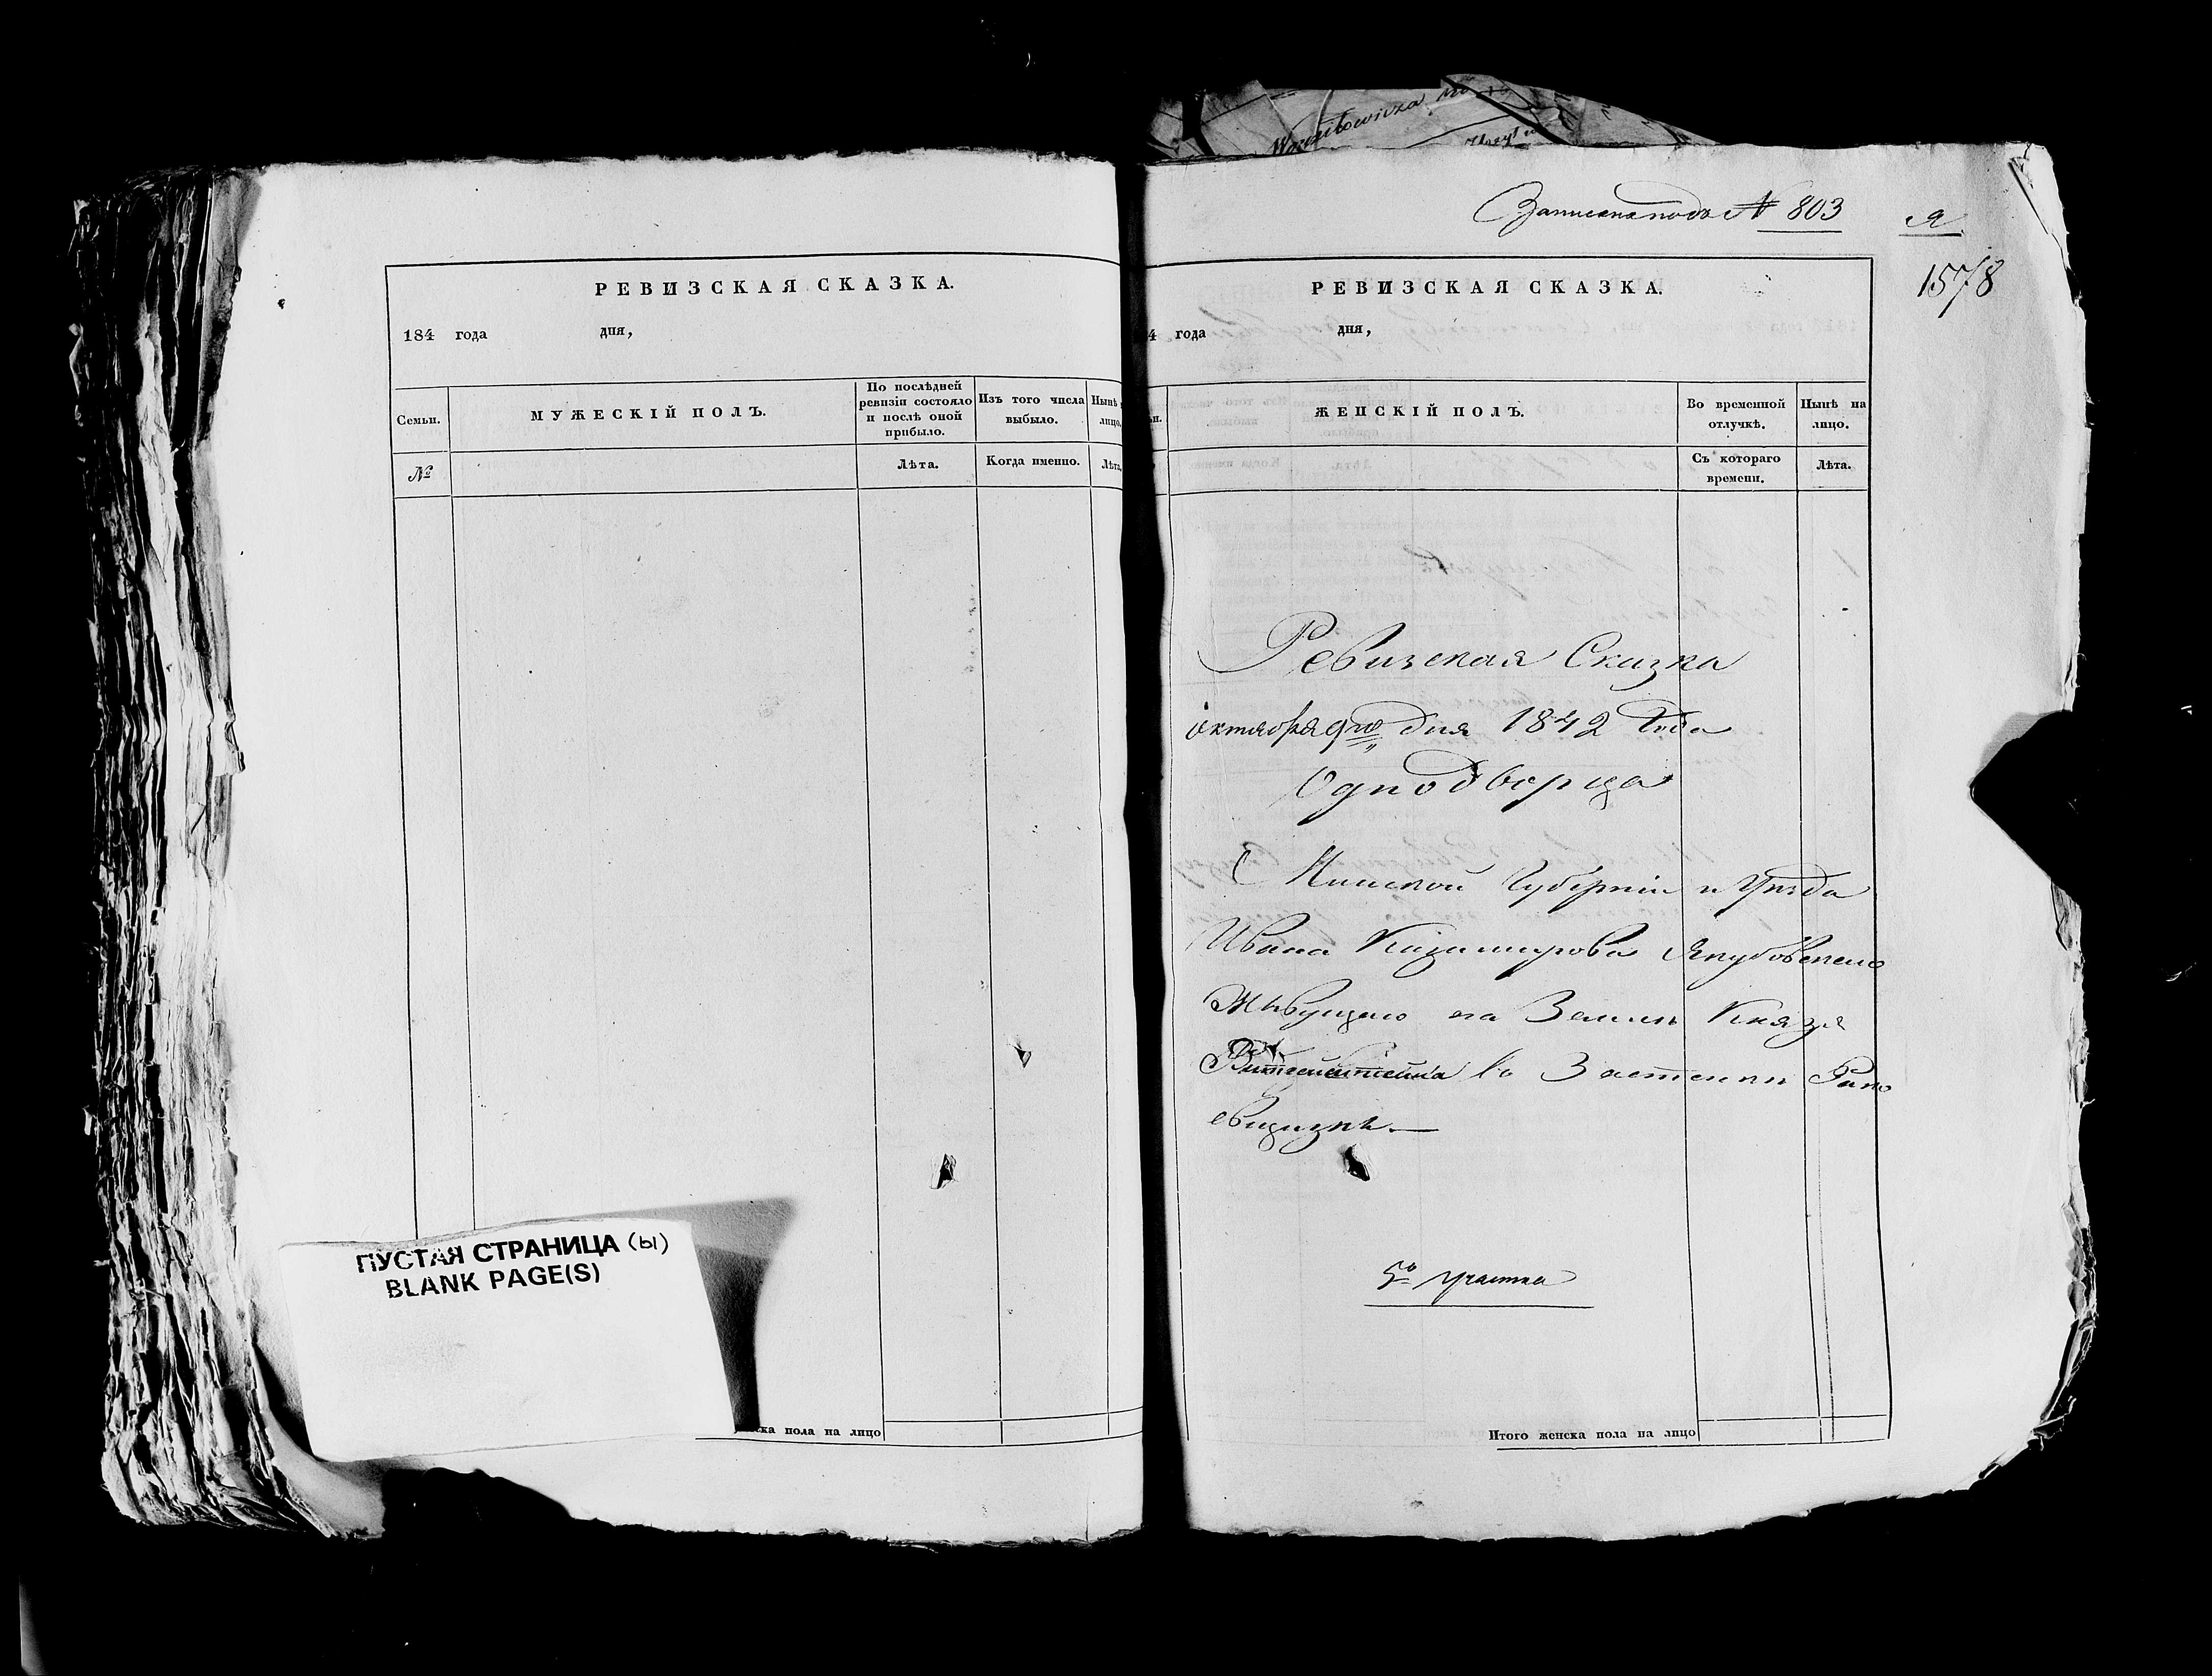 РЕВИЗСКАЯ СКАЗКА.
184 года дня,
Семьи.
МУЖЕСКІЙ ПОЛЪ.
По послѣдней ревизіи состояло и послѣ оной прибыло.
Изъ того числа выбыло.
Нынѣ
лицо.
№
Лѣта.
Когда именно.
Лѣта.
ПУСТАЯ СТРАНИЦА (ы)
BLANK PAGE(S)
ска пола на лицо
Записана подъ № 803
Я
1578
РЕВИЗСКАЯ СКАЗКА.
4 года дня,
ЖЕНСКІЙ ПОЛЪ.
Во временной отлучкѣ.
Нынѣ на лицо.
Съ котораго времени.
Лѣта.
Ревизская Сказка
октября 9го дня 1842 Года
Однодворца
Минской Губерніи и Уѣзда
Ивана Казимирова Якубовскаго
Живущаго на Землѣ Князя
Витгенштейна въ Застенкѣ
5о участка
Итого женска пола на лицо